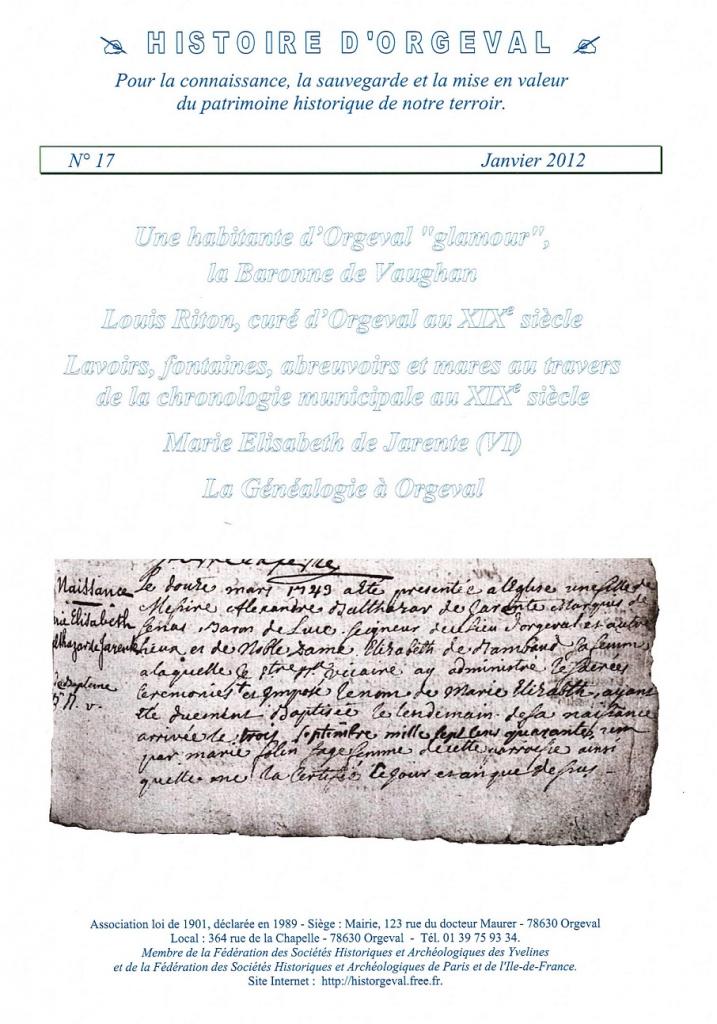 HISTOIRE D'ORGEVAL
Pour la connaissance, la sauvegarde et la mise en valeur
du patrimoine historique de notre terroir.
N° 17 Janvier 2012
Une habitante d'Orgeval "glamour",
la Baronne de Vaughan
Louis Riton, curé d'Orgeval au XIXe siècle
Lavoirs, fontaines, abreuvoirs et mares au travers
de la chronologie municipale au XIXe siècle
Marie Elisabeth de Jarente (VI)
La Généalogie à Orgeval
Naissance
Elisabeth
de Jarente
Le douze mars 1743 a été presentée a leglise une fille de
Messire Alexandre Balthazar de Jarente Marquis de
Senas Baron de Luc Seigneur du lieu d'orgeval et autre
lieux et de Noble Dame Elizabeth de Rambaud sa femme
a laquelle le vicaire ay administré les
Ceremonies et imposé le nom de Marie Elizabeth, ayant
été duement Baptisée le lendemain de sa naissance
arrivée le trois septembre mille sept cens quarante, 
par marie Colin sage femme de cette parroisse ainsi
quelle me la Certifié le jour et an que dessus
Association loi de 1901, déclarée en 1989 - Siège : Mairie, 123 rue du docteur Maurer - 78630 Orgeval
Local : 364 rue de la Chapelle - 78630 Orgeval - Tél. 01 39 75 93 34.
Membre de la Fédération des Sociétés Historiques et Archéologiques des Yvelines
et de la Fédération des Sociétés Historiques et Archéologiques de Paris et de l'Ile-de-France.
Site Internet : http://historgeval.free.fr.